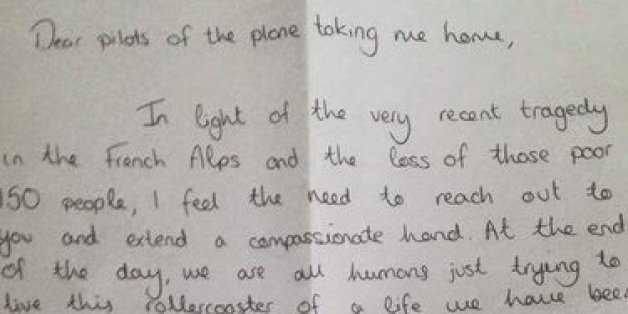 Dear pilots of the plane taking me home,
In light of the very recent tragedy
in the French Alps and the loss of those poor
150 people, I feel the need to reach out to
you and extend a compassionate hand. At the end
of the day, we are all humans just trying to
live this rollercoaster of a life we have bee